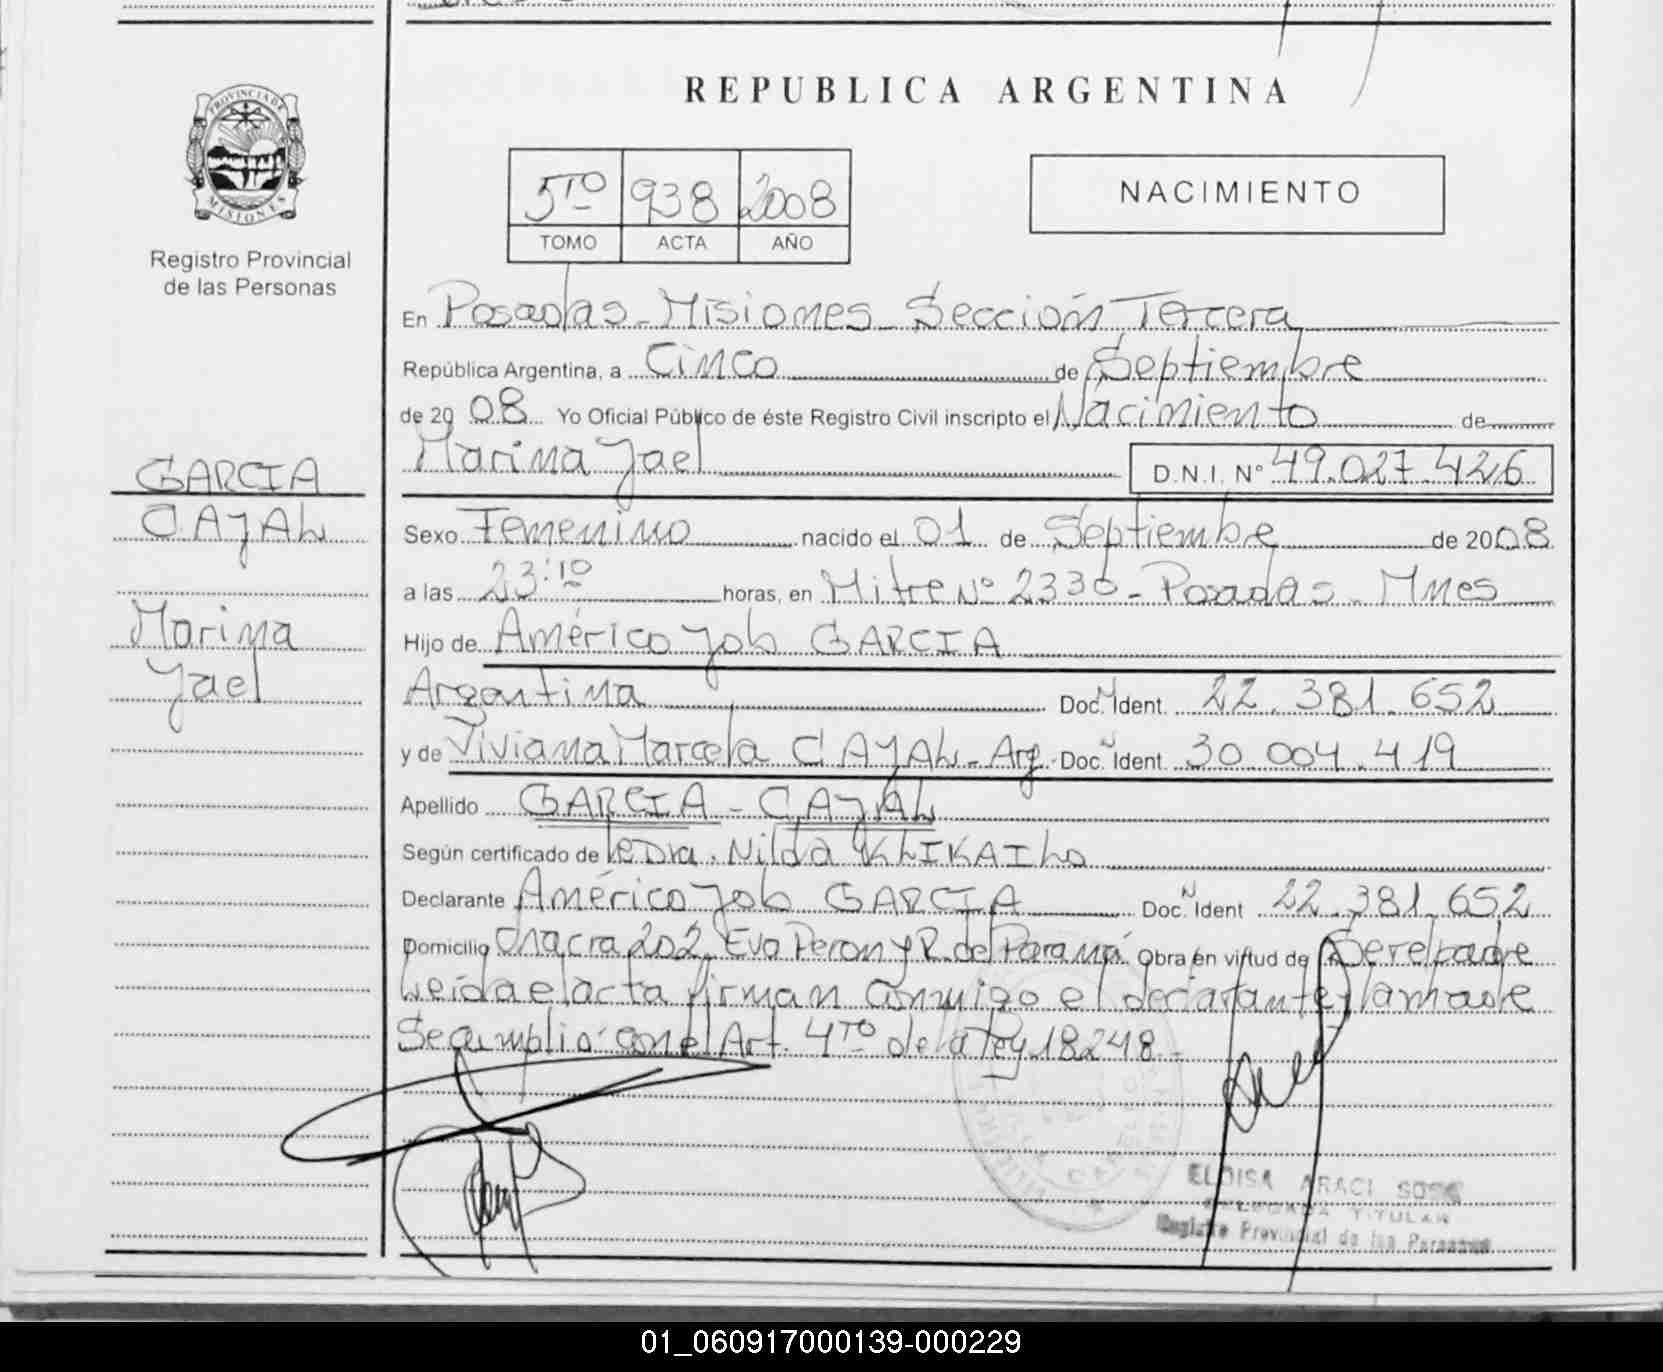 PROVINCIA DE
MISIONES
Registro Provincial
de las Personas
GARCIA
CAJAL
Marina
Yael
REPUBLICA ARGENTINA
5TO 938 2008
TOMO ACTA AÑO
NACIMIENTO
En Posadas - Misiones - Sección Tercera
República Argentina, a Cinco de Septiembre
de 20 08 Yo Oficial Público de éste Registro Civil inscripto el Nacimiento de
Marina Yael D.N.I. N° 49.027.426
Sexo Femenino nacido el 01 de Septiembre de 2008
a las 23:10 horas, en Mitre Nº 2330 - Posadas - Mnes
Hijo de Américo Job GARCIA
Argentina Doc. Ident. 22.381.652
y de Viviana Marcela CAJAL - Arg. Doc. Ident. 30.004.419
Apellido GARCIA - CAJAL
Según certificado de la Dra. Nilda KLIKAILO
Declarante Américo Job GARCIA Doc. Ident 22.381.652
Domicilio Chacra 202, Eva Peron y R. del Paraná Obra en virtud de Ser el padre
Leída el acta firman conmigo el declarante y la madre
Se cumplió con el Art. 4TO de la Ley 18248 -
ELOISA ARACI SOSA
DELEGADA TITULAR
Registro Provincial de las Personas
01_060917000139-000229